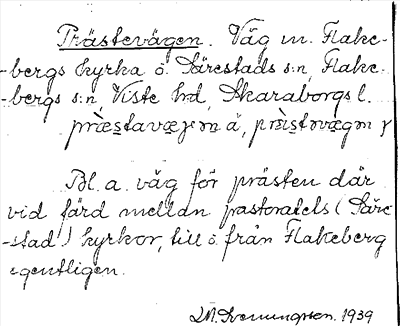 Prästevägen. Väg m. Flake-
-bergs kyrka o. Särestads s:n, Flake-
-bergs s:n, Viste hd, Skaraborgs l.
præstavæjən å,
Bl. a. väg för prästen där
vid färd mellan pastoratets (Säre-
-stad) kyrkor, till o. från Flakeberg
egentligen.
1939